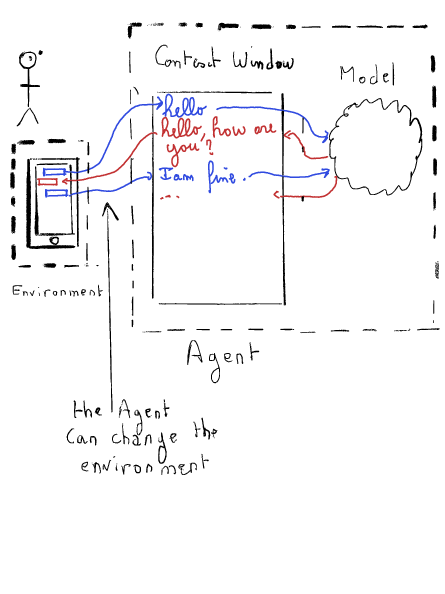 Context Window
Model
hello
hello, how are
you?
I am fine.
...
Environment
Agent
the Agent
Can change the
environment